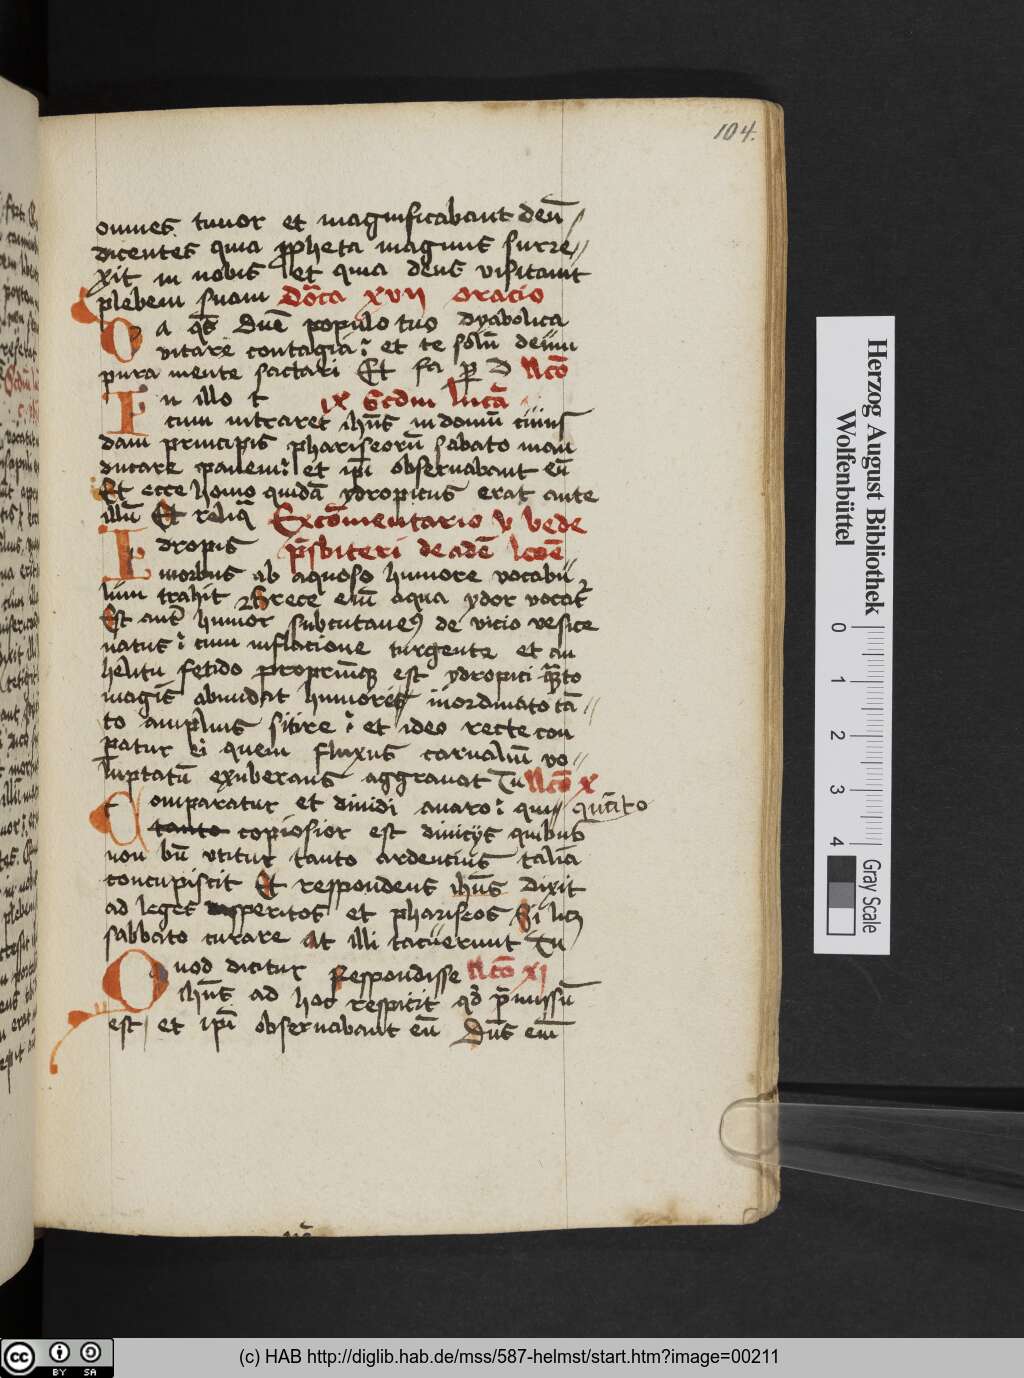 104.
omnes timor et magnificabant deū
dicentes quia ꝓpheta magnus surre
xit in nobis et quia deus visitauit
plebem suam Dōica xvii oracio
Da qs̄ Dne popūlo tuo dyabolica
vitare contagia: et te solū deum
pura mente sectari Et fa ꝑ D Lco
In illo t ix Scdm lucā
cum intraret ihūs in domū cuius
dam principis phariseorū sabato man
ducare panem: et ip̄i obseruabant eū
Et ecce homo quidā ydropicus erat ante
illū Et reliq̄ Ex cōmentario v bede
Idropis p̄sbiteri de adē lcōē
morbus ab aquoso humore vocabu
lum trahit Grece em̄ aqua ydor vocat᷑
Est aut̄ humor subcutaneꝰ de vicio vesice
natus: cum inflacione turgente et an
helitu fetido propriūqꝫ est ydropici q̄to
magis abundat humore inordinato tā
to amplius sitire: et ideo recte com
ꝑatur ei quem fluxus carnaliū vo
luptatū exuberans aggrauat Tu Lco x
Comparatur et diuidi auaro: qui quāto
tanto copiosior est diuicijs quibus
non bn̄ vtitur tanto ardentius talia
concupiscit Et respondens ihūs dixit
ad leges peritos et phariseos Si licꝫ
sabbato curare At illi tacuerunt Tu
Quod dicitur Respondisse Lco xi
ihūs ad hoc respicit qd̄ p̄missū
est et ip̄i obseruabant eū Dūs em̄
Herzog August Bibliothek
Wolfenbüttel
0 1 2 3 4
Gray Scale
cc BY SA
(c) HAB http://diglib.hab.de/mss/587-helmst/start.htm?image=00211